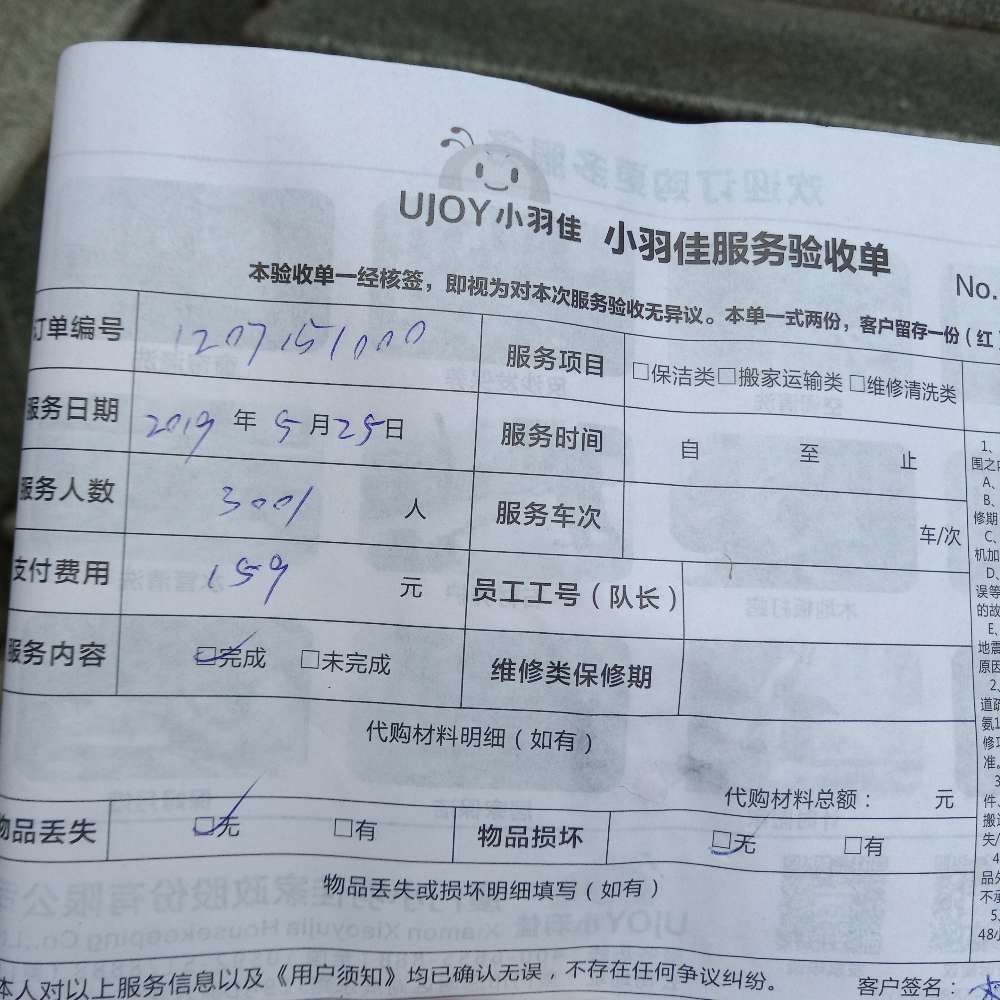 UJOY小羽佳 小羽佳服务验收单
No.
本验收单一经核签，即视为对本次服务验收无异议。本单一式两份，客户留存一份（红
订单编号 1207151000 服务项目 □保洁类□搬家运输类□维修清洗类
服务日期 2019年5月25日 服务时间 自 至 止
服务人数 3001 人 服务车次 车/次
支付费用 159 元 员工工号（队长）
服务内容 □完成 □未完成 维修类保修期
代购材料明细（如有）
代购材料总额： 元
物品丢失 □无 □有 物品损坏 □无 □有
物品丢失或损坏明细填写（如有）
本人对以上服务信息以及《用户须知》均已确认无误，不存在任何争议纠纷。 客户签名：
1、
围之内
A、
B、
修期
C、
机加
D、
误等
的故
E、
地震
原因
2、
道疏
氨1
修项
准。
3
件、
搬运
失/
4
品外
不承
5、
48小